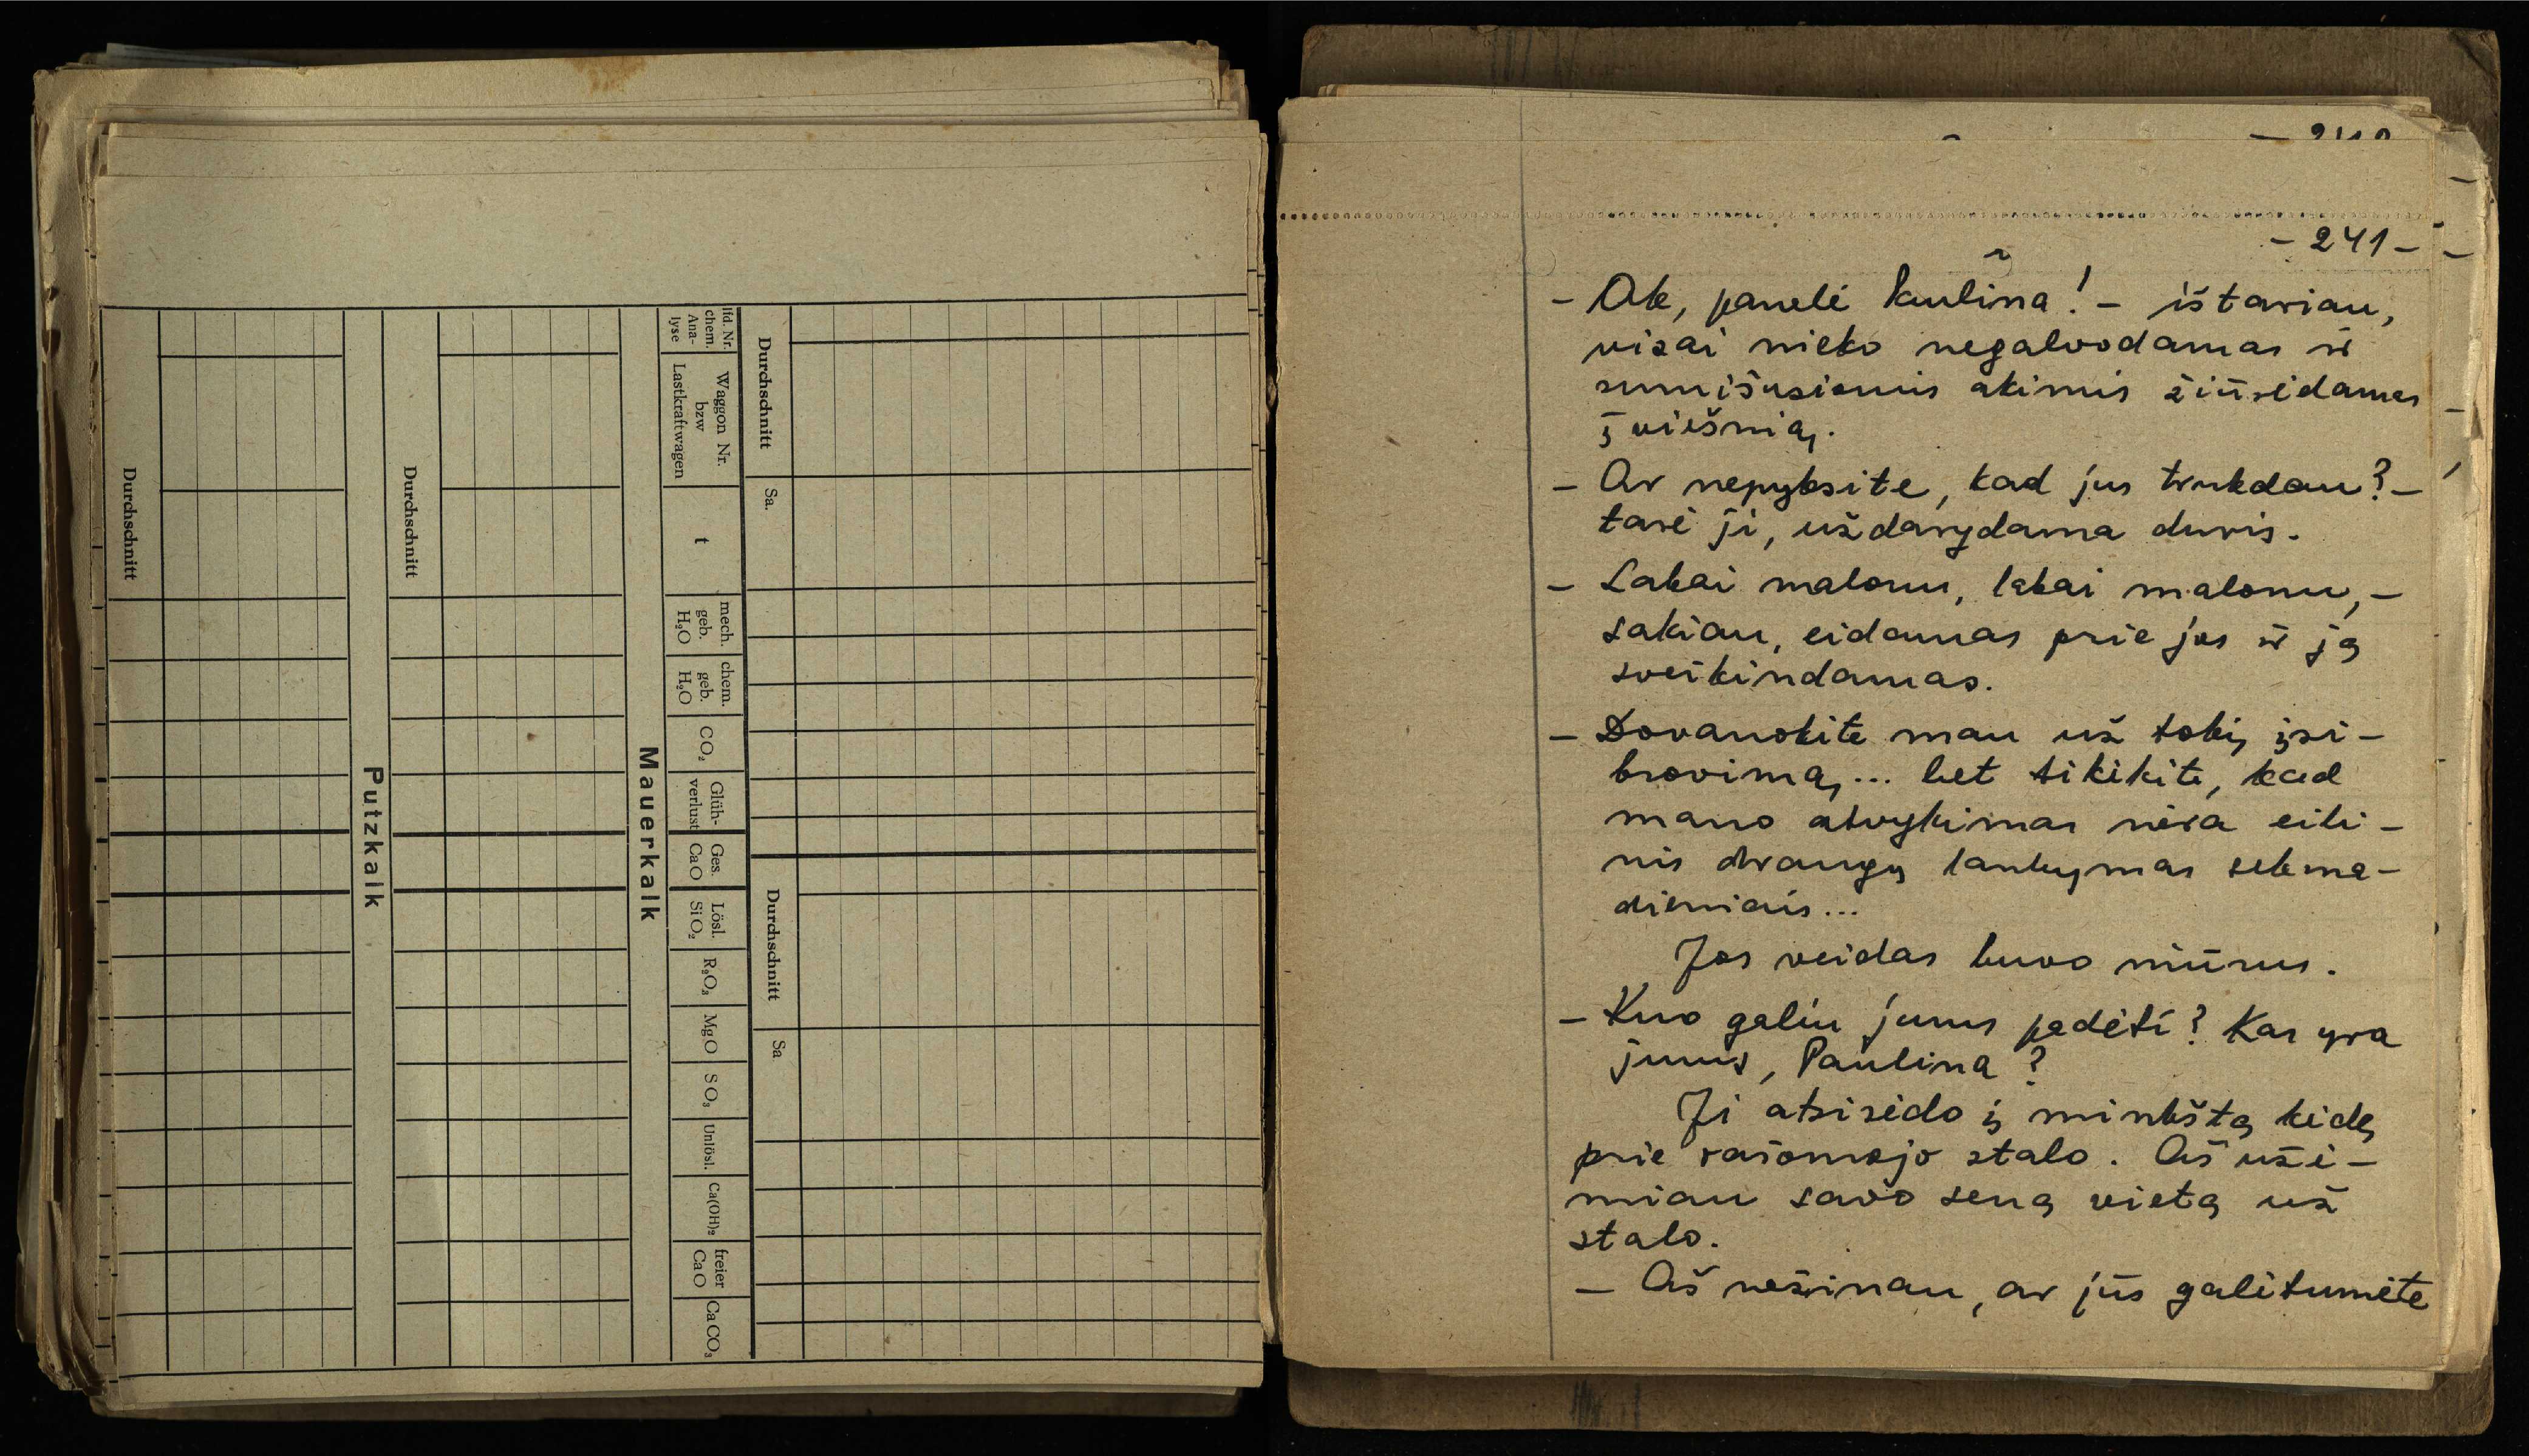 Durchschnitt
Sa.
Durchschnitt
Sa
lfd. Nr.
chem.
Ana-
lyse
Waggon Nr.
bzw
Lastkraftwagen
t
mech.
geb.
H₂O
chem.
geb.
H₂O
CO₂
Glüh-
verlust
Ges.
CaO
Lösl.
SiO₂
R₂O₃
MgO
SO₃
Unlösl.
Ca(OH)₂
freier
CaO
CaCO₃
Mauerkalk
Durchschnitt
Putzkalk
Durchschnitt
- 241 -
- Ak, panelė Paulina! - ištariau,
visai nieko negalvodamas ir
sumišusiomis akimis žiūrėdamas
į viešnią.
- Ar nepyksite, kad jus trukdau? -
tarė ji, uždarydama duris.
- Labai malonu, labai malonu, -
sakiau, eidamas prie jos ir ją
sveikindamas.
- Dovanokite man už tokį įsi-
brovimą,... bet tikėkite, kad
mano atvykimas nėra eili-
nis draugų lankymas sekma-
dieniais...
Jos veidas buvo niūrus.
- Kuo galiu jums padėti? Kas yra
jums, Paulina?
Ji atsisėdo į minkštą kėdę
prie rašomojo stalo. Aš užė-
miau savo seną vietą už
stalo.
- Aš nežinau, ar jūs galėtumėte